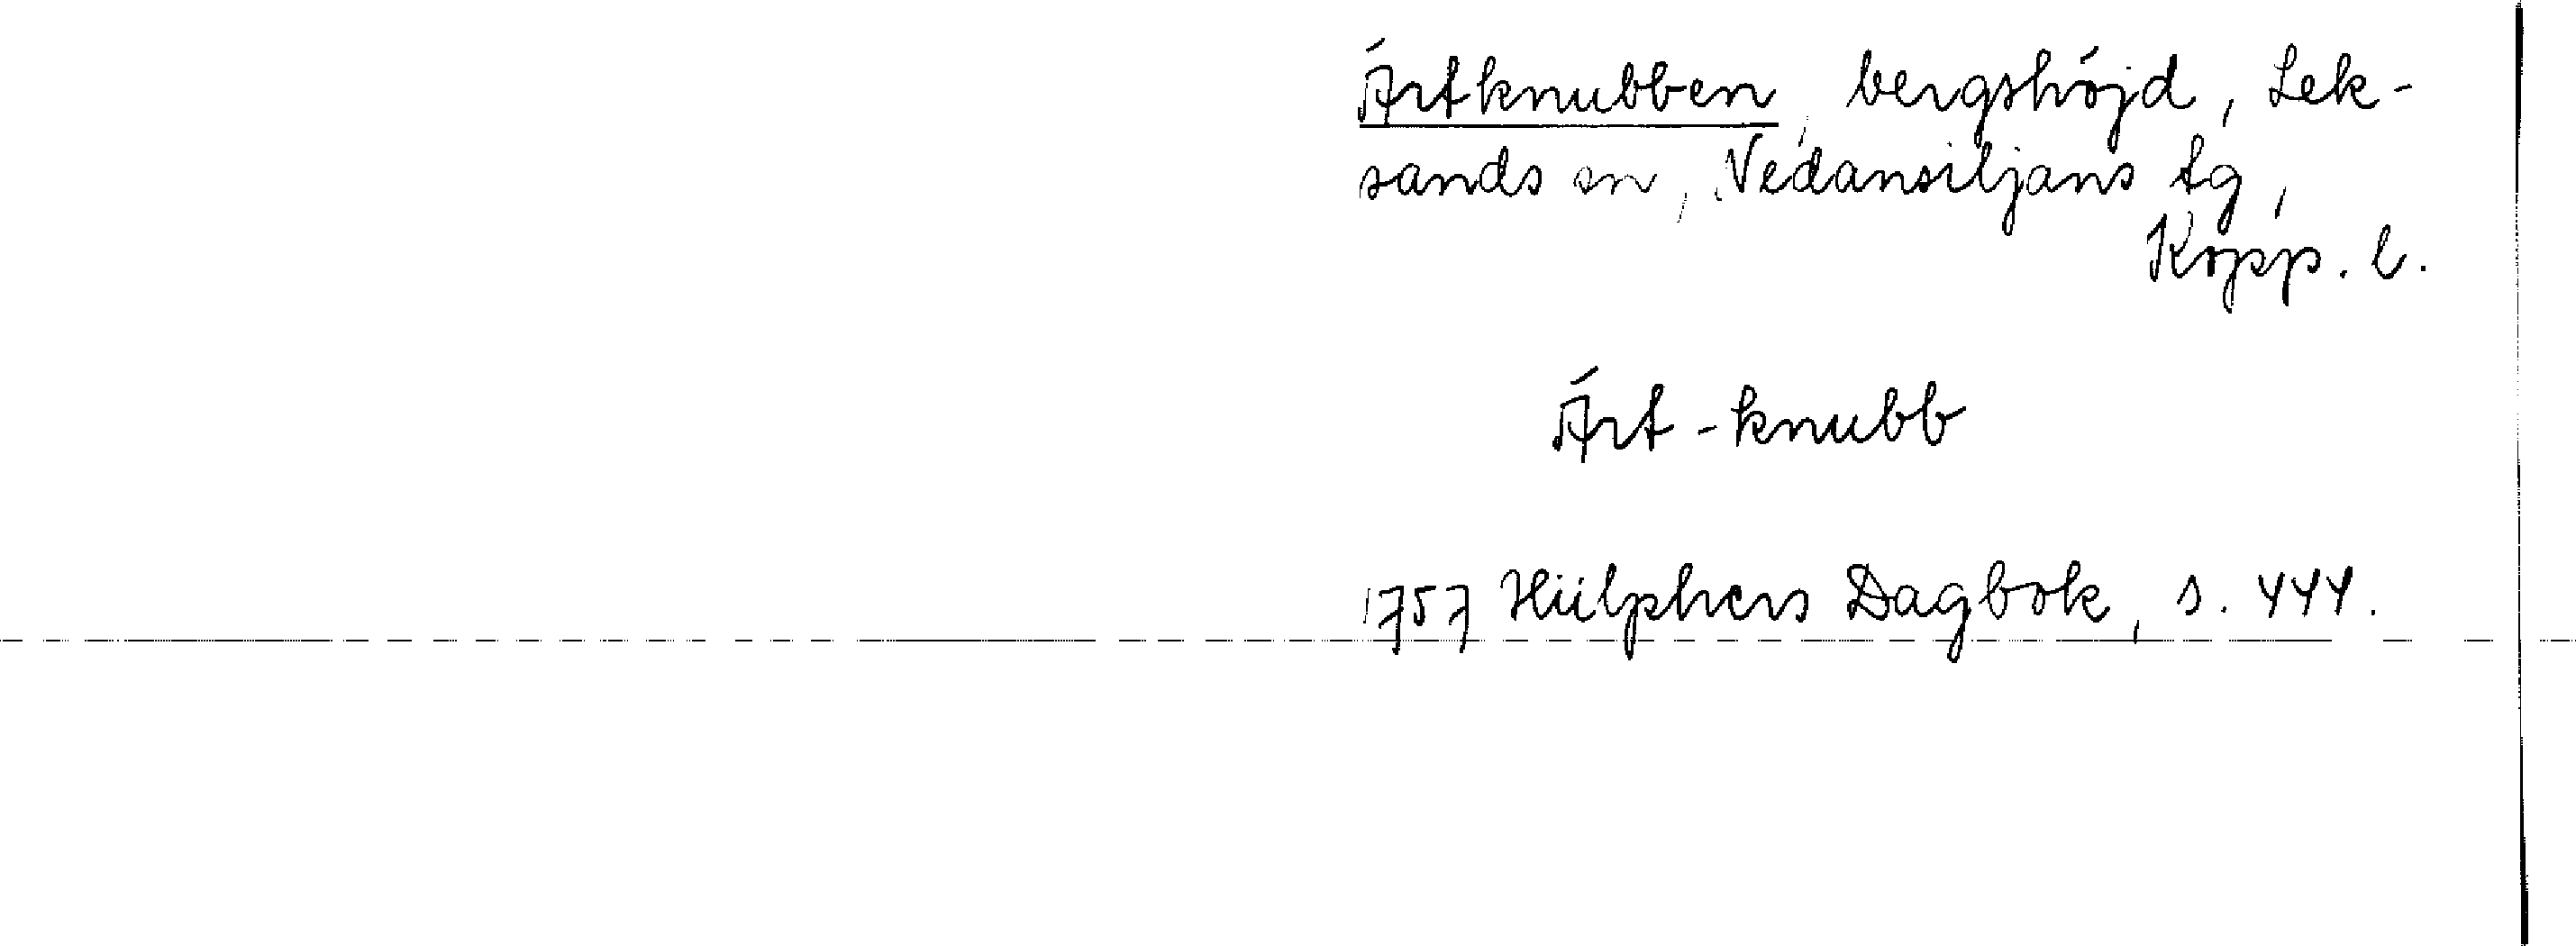 Ärtknubben, bergshöjd, Lek-
sands sn, Nedansiljans tg,
Kopp. l.
Ärt-knubb
1757 Hülphers Dagbok, s. 444.